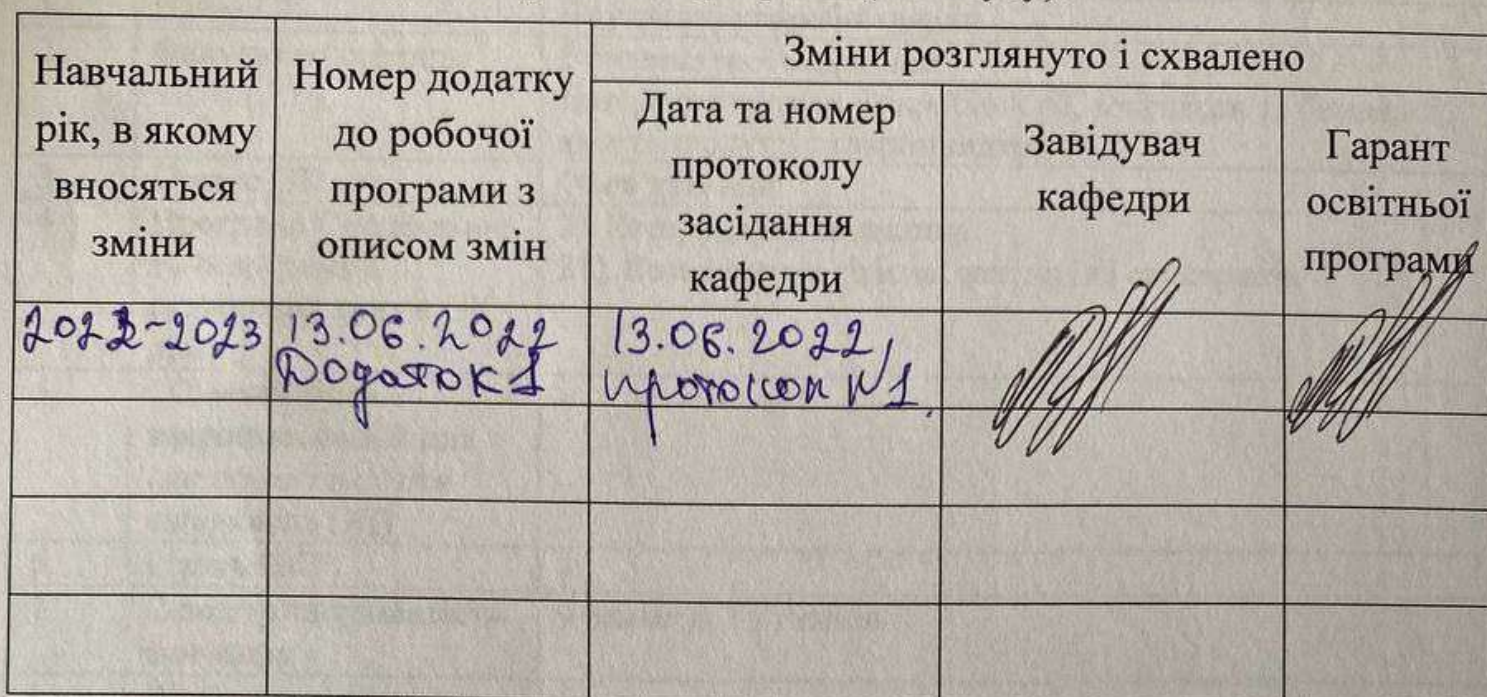 Навчальний
рік, в якому
вносяться
зміни
Номер додатку
до робочої
програми з
описом змін
Зміни розглянуто і схвалено
Дата та номер
протоколу
засідання
кафедри
Завідувач
кафедри
Гарант
освітньої
програми
2022-2023
13.06.2022
Додаток 1
13.06.2022,
протокол №1.